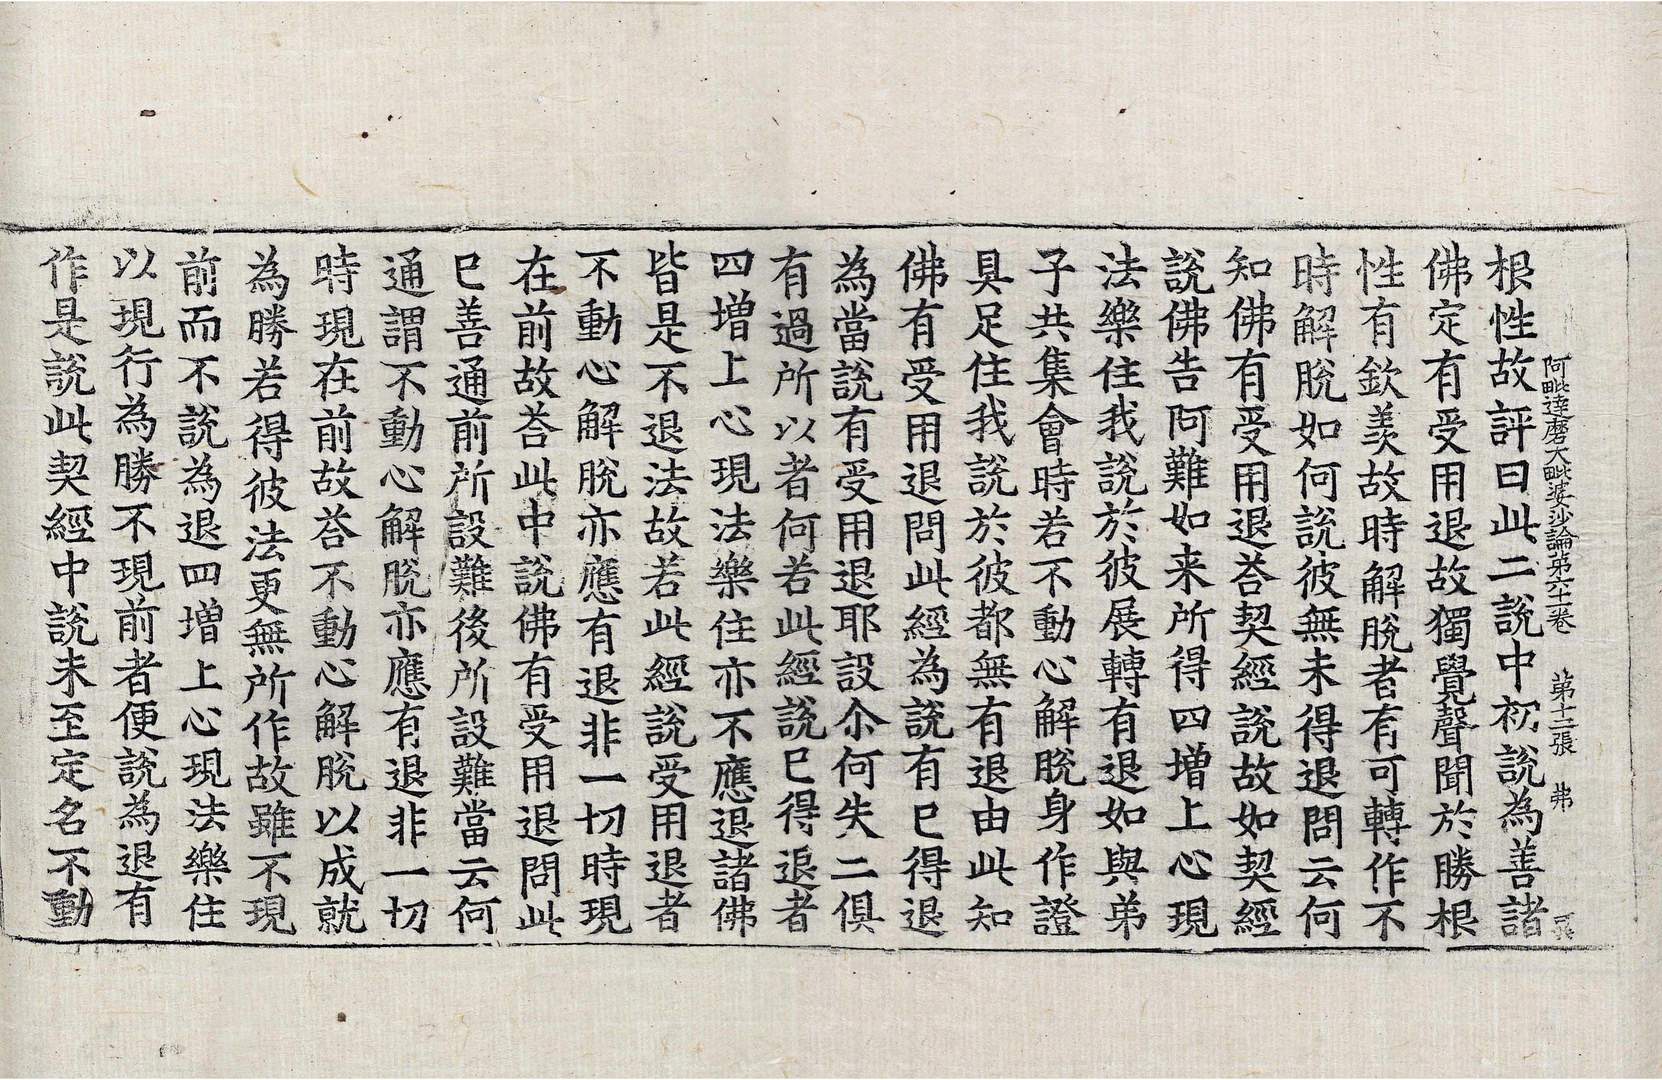 阿毗達磨大毗婆沙論第六十一卷　第十二張　弗
根性故評曰此二說中初說為善諸
佛定有受用退故獨覺聲聞於勝根
性有欽羨故時解脫者有可轉作不
時解脫如何說彼無未得退問云何
知佛有受用退荅契經說故如契經
說佛告阿難如来所得四增上心現
法樂住我說於彼展轉有退如與弟
子共集會時若不動心解脫身作證
具足住我說於彼都無有退由此知
佛有受用退問此經為說有已得退
為當說有受用退耶設尒何失二俱
有過所以者何若此經說已得退者
四增上心現法樂住亦不應退諸佛
皆是不退法故若此經說受用退者
不動心解脫亦應有退非一切時現
在前故荅此中說佛有受用退問此
已善通前所設難後所設難當云何
通謂不動心解脫亦應有退非一切
時現在前故荅不動心解脫以成就
為勝若得彼法更無所作故雖不現
前而不說為退四增上心現法樂住
以現行為勝不現前者便說為退有
作是說此契經中說未至定名不動